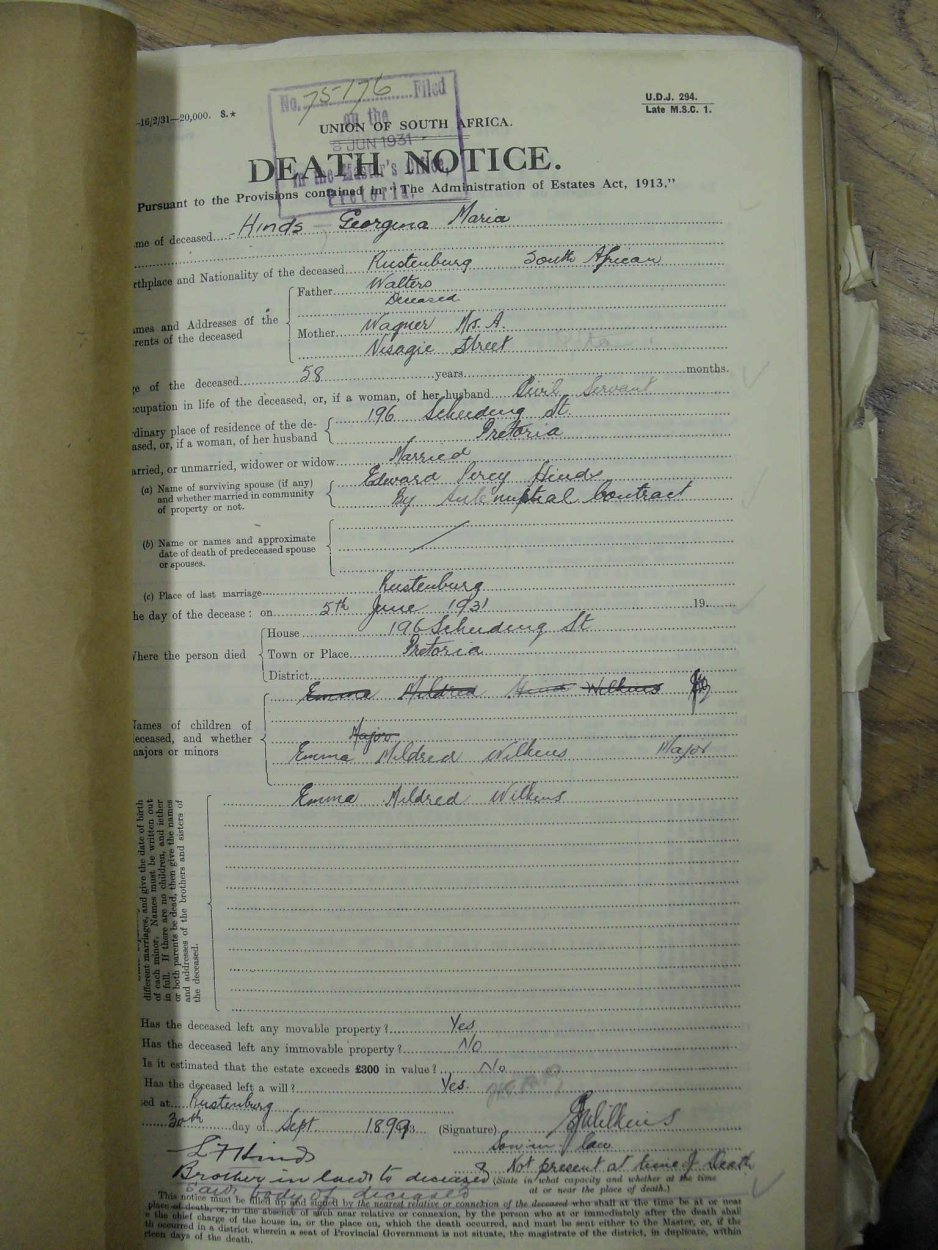 -16/2/31—20,000. S.*
U.D.J. 294.
Late M.S.C. 1.
No. 75176 Filed
on the
8 JUN 1931
In the Master's Office,
Pretoria.
UNION OF SOUTH AFRICA.
DEATH NOTICE.
Pursuant to the Provisions contained in "The Administration of Estates Act, 1913."
me of deceased Hinds Georgina Maria
rthplace and Nationality of the deceased Rustenburg South African
mes and Addresses of the
rents of the deceased
Father Walters
Deceased
Mother Wagner Mrs. A.
Visagie Street
e of the deceased 58 years months.
cupation in life of the deceased, or, if a woman, of her husband Civil Servant
rdinary place of residence of the de-
ased, or, if a woman, of her husband
196 Scheiding St.
Pretoria
arried, or unmarried, widower or widow Married
(a) Name of surviving spouse (if any)
and whether married in community
of property or not.
Edward Percy Hinds
By nuptial Contract
(b) Name or names and approximate
date of death of predeceased spouse
or spouses.
(c) Place of last marriage Rustenburg
he day of the decease: on 5th June 1931 19
Where the person died
House 196 Scheiding St
Town or Place Pretoria
District
Names of children of
deceased, and whether
majors or minors
Emma Mildred Hinds Wilkins
Major
Emma Mildred Wilkins Major
different marriages, and give the date of birth
of each minor. Names must be written out
in full. If there are no children, and iether
or both parents be dead, then give the names
and addresses of the brothers and sisters of
the deceased.
Emma Mildred Wilkins
Has the deceased left any movable property? Yes
Has the deceased left any immovable property? No
Is it estimated that the estate exceeds £300 in value? No
Has the deceased left a will? Yes.
ed at Rustenburg
30th day of Sept 1899 (Signature) Wilkins
Son in law
Hinds
Brother in law to deceased
& Not present at time of Death
(State in what capacity and whether at the time
at or near the place of death.)
Saw body of deceased
This notice must be filled up and signed by the nearest relative or connexion of the deceased who shall at the time be at or near
place of death, or, in the absence of such near relative or connexion, by the person who at or immediately after the death shall
e the chief charge of the house in, or the place on, which the death occurred, and must be sent either to the Master, or, if the
th occurred in a district wherein a seat of Provincial Government is not situate, the magistrate of the district, in duplicate, within
rteen days of the death.